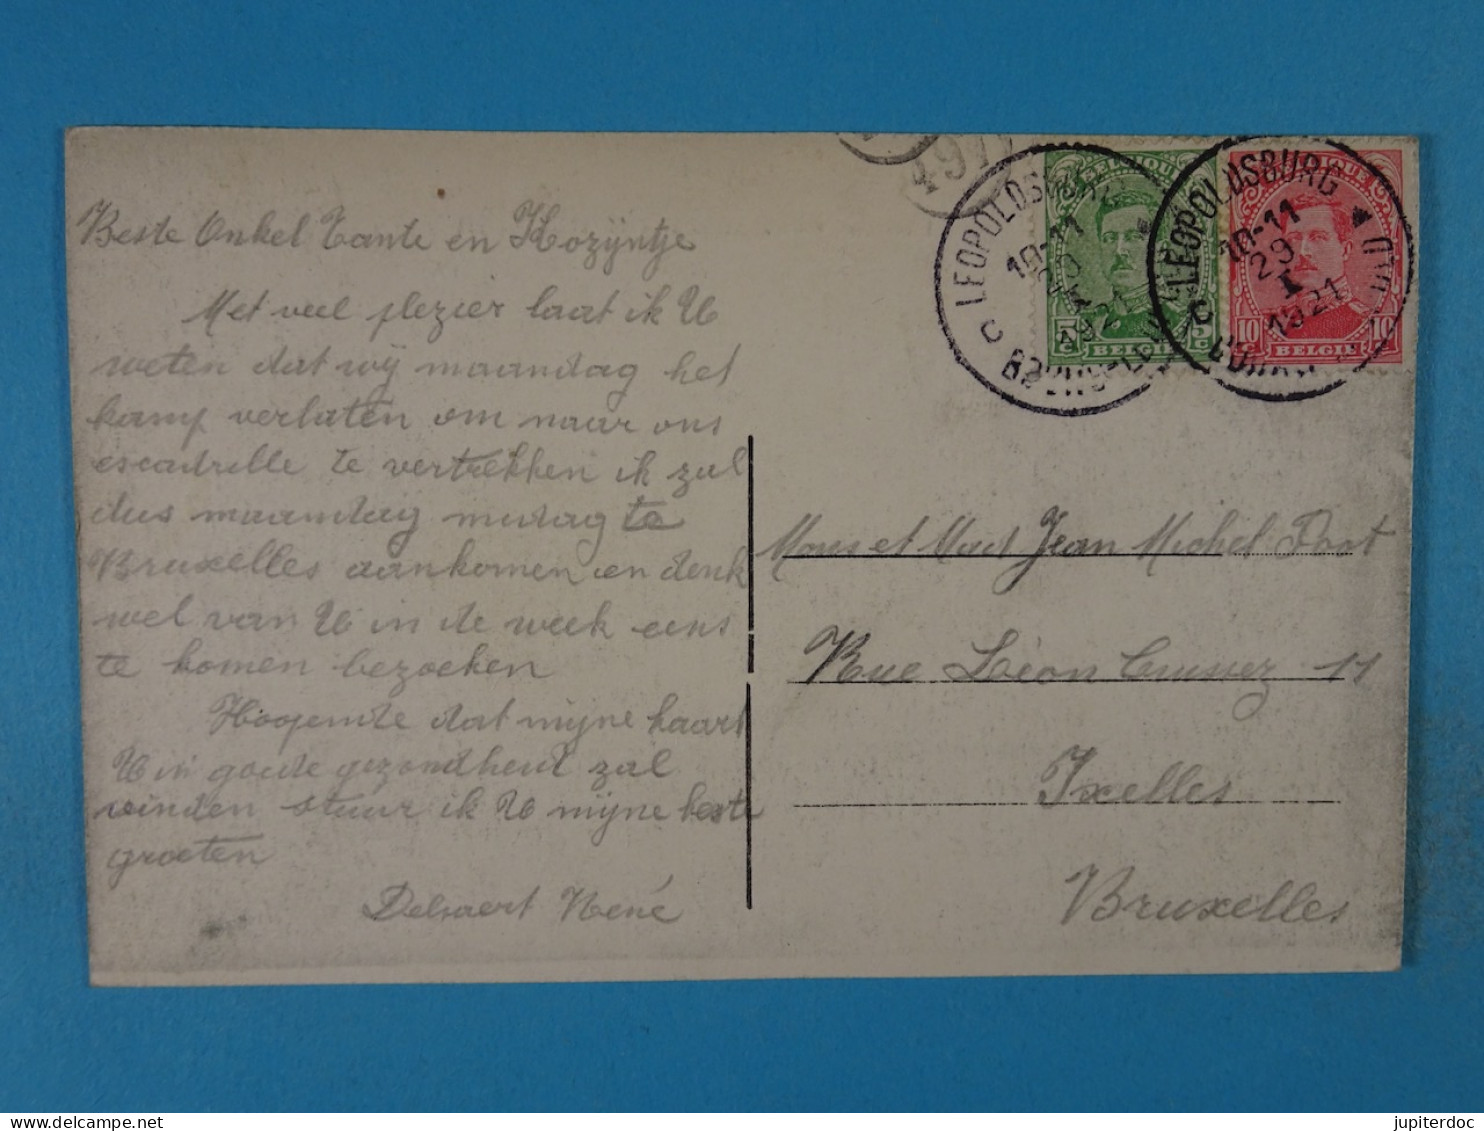 Beste Onkel Tante en Kozijntje
Met veel plezier laat ik U
weten dat wij maandag het
kamp verlaten om naar ons
escadrille te vertrekken ik zal
dus maandag midag te
Bruxelles aankomen en denk
wel van U in de week eens
te komen bezoeken
Hoopende dat mijne kaart
U in goede gezondheid zal
vinden stuur ik U mijne beste
groeten
Delsaert René
LEOPOLDSBURG
10-11
29
I
1921
C
BELGIQUE
5c 5c
BELGIE
LEOPOLDSBURG
10-11
29
I
1921
C
BELGIQUE
10c 10c
BELGIE
Mons et Mad Jean Michel
Rue Léon 11
Ixelles
Bruxelles
jupiterdoc
delcampe.net